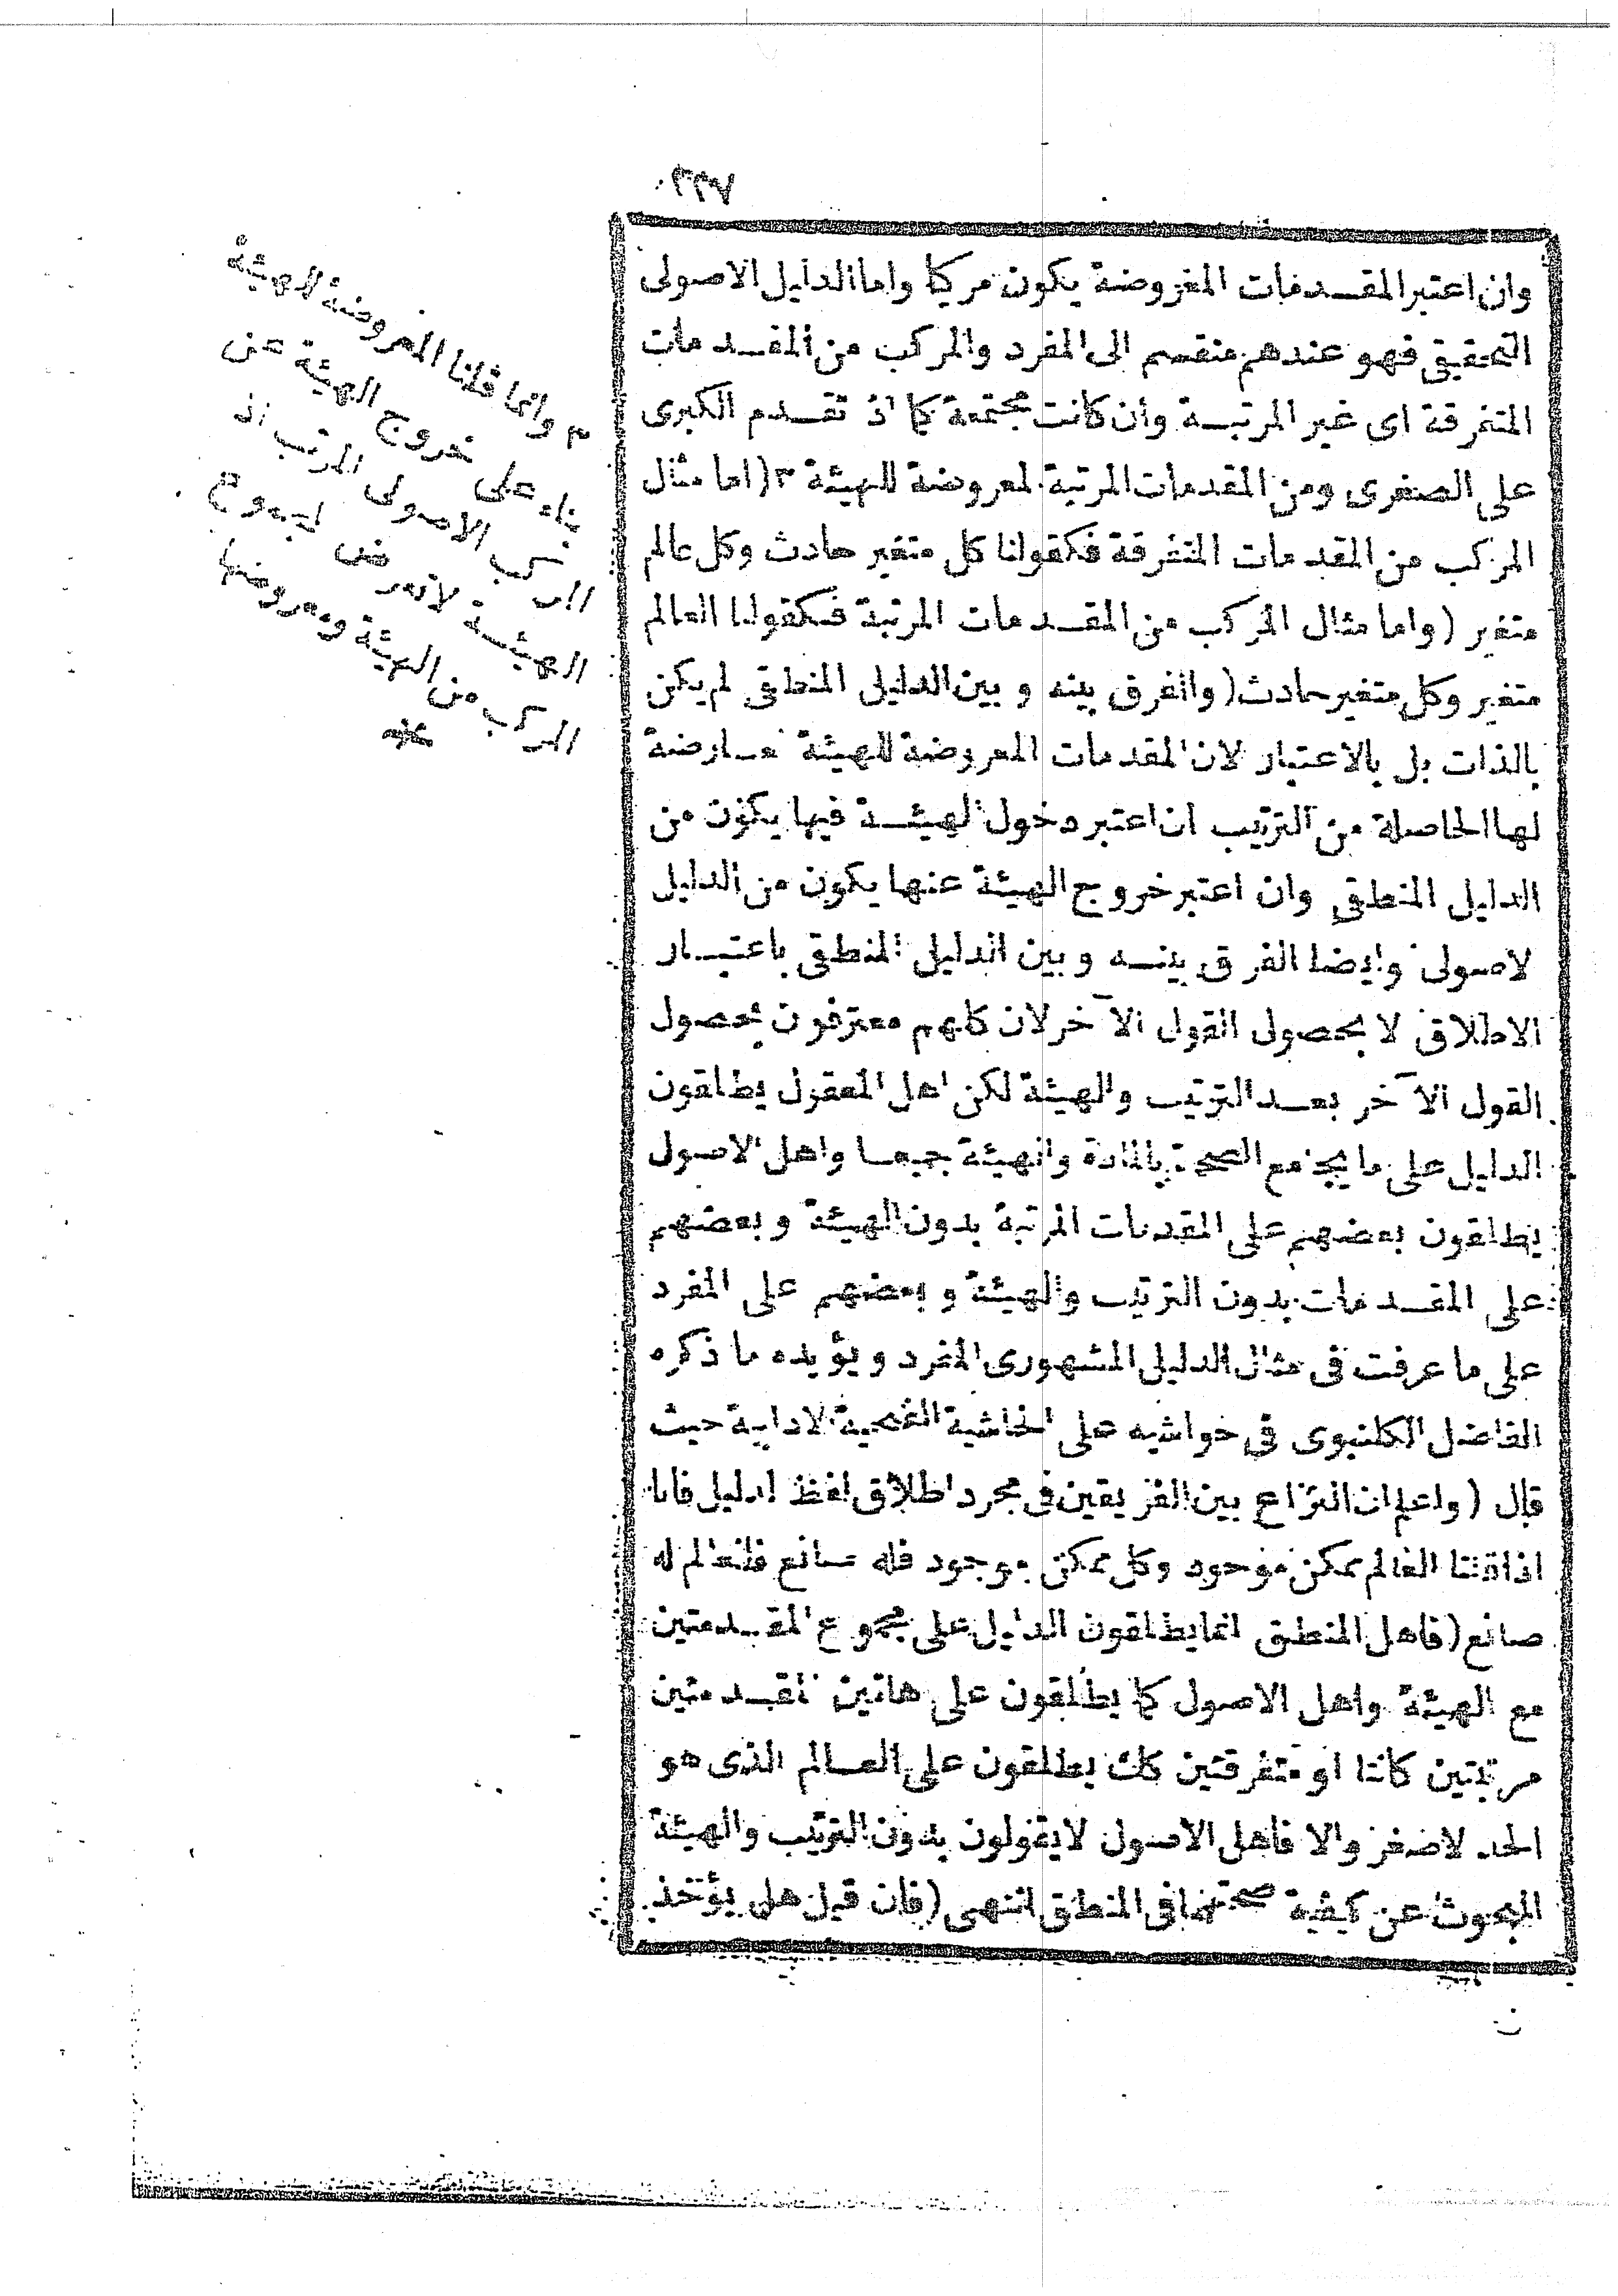 ٢٣٧
وان اعتبر المقدمات المعروضة يكون مركبا واما الدليل الاصولى
التحقيقى فهو عندهم منقسم الى المفرد والمركب من المقدمات
المتفرقة اى غير المرتبة وان كانت مجتمعة كما اذ تقدم الكبرى
على الصغرى ومن المقدمات المرتبة لمعروضة للهيئة ٣ (اما مثال
المركب من المقدمات المتفرقة فكقولنا كل متغير حادث وكل عالم
متغير (واما مثال المركب من المقدمات المرتبة فكقولنا العالم
متغير وكل متغير حادث (والفرق بينه وبين الدليل المنطقى لم يكن
بالذات بل بالاعتبار لان المقدمات المعروضة للهيئة عارضة
لها الحاصلة من الترتيب ان اعتبر دخول لهيئة فيها يكون من
الدليل المنطقى وان اعتبر خروج الهيئة عنها يكون من الدليل
لاصولى وايضا الفرق بينه وبين الدليل المنطقى باعتبار
الاطلاق لا بحصول القول الآخر لان كلهم معترفون بحصول
القول الآخر بعد الترتيب والهيئة لكن اهل المعقول يطلقون
الدليل على ما يجامع الصحة بالمادة والهيئة جميعا واهل الاصول
يطلقون بعضهم على المقدمات المرتبة بدون الهيئة وبعضهم
على المقدمات بدون الترتيب والهيئة وبعضهم على المفرد
على ما عرفت فى مثال الدليل المشهورى المفرد ويؤيده ما ذكره
الفاضل الكلنبوى فى حواشيه على الحاشية الفتحية لادابية حيث
قال (واعلم ان النزاع بين الفريقين فى مجرد اطلاق لفظ الدليل فانا
اذا قلنا العالم ممكن موجود وكل ممكن موجود فله صانع فالعالم له
صانع (فاهل المنطق انما يطلقون الدليل على مجموع المقدمتين
مع الهيئة واهل الاصول كما يطلقون على هاتين المقدمتين
مرتبتين كانتا او متفرقتين كك يطلقون على العالم الذى هو
الحد لاصغر والا فاهل الاصول لا يقولون بدون الترتيب والهيئة
المبحوث عن كيفية صحتهما فى المنطق انتهى (فان قيل هل يؤخذ
٣ وانما قلنا المعروضة للهيئة
بناء على خروج الهيئة عن
المركب الاصولى المرتب اذ
الهيئة لا تعرض لمجموع
المركب من الهيئة ومعروضها
منه